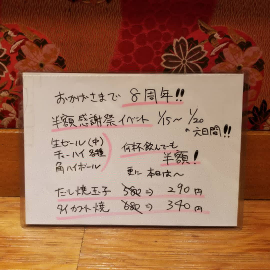 おかげさまで 8周年!!
半額感謝祭イベント 1/15〜1/20
の六日間!!
生ビール(中)
チューハイ各種
角ハイボール
何杯飲んでも
半額!
更に 本日は〜
だし焼玉子 580 ⇒ 290円
タイカブト焼 680 ⇒ 340円